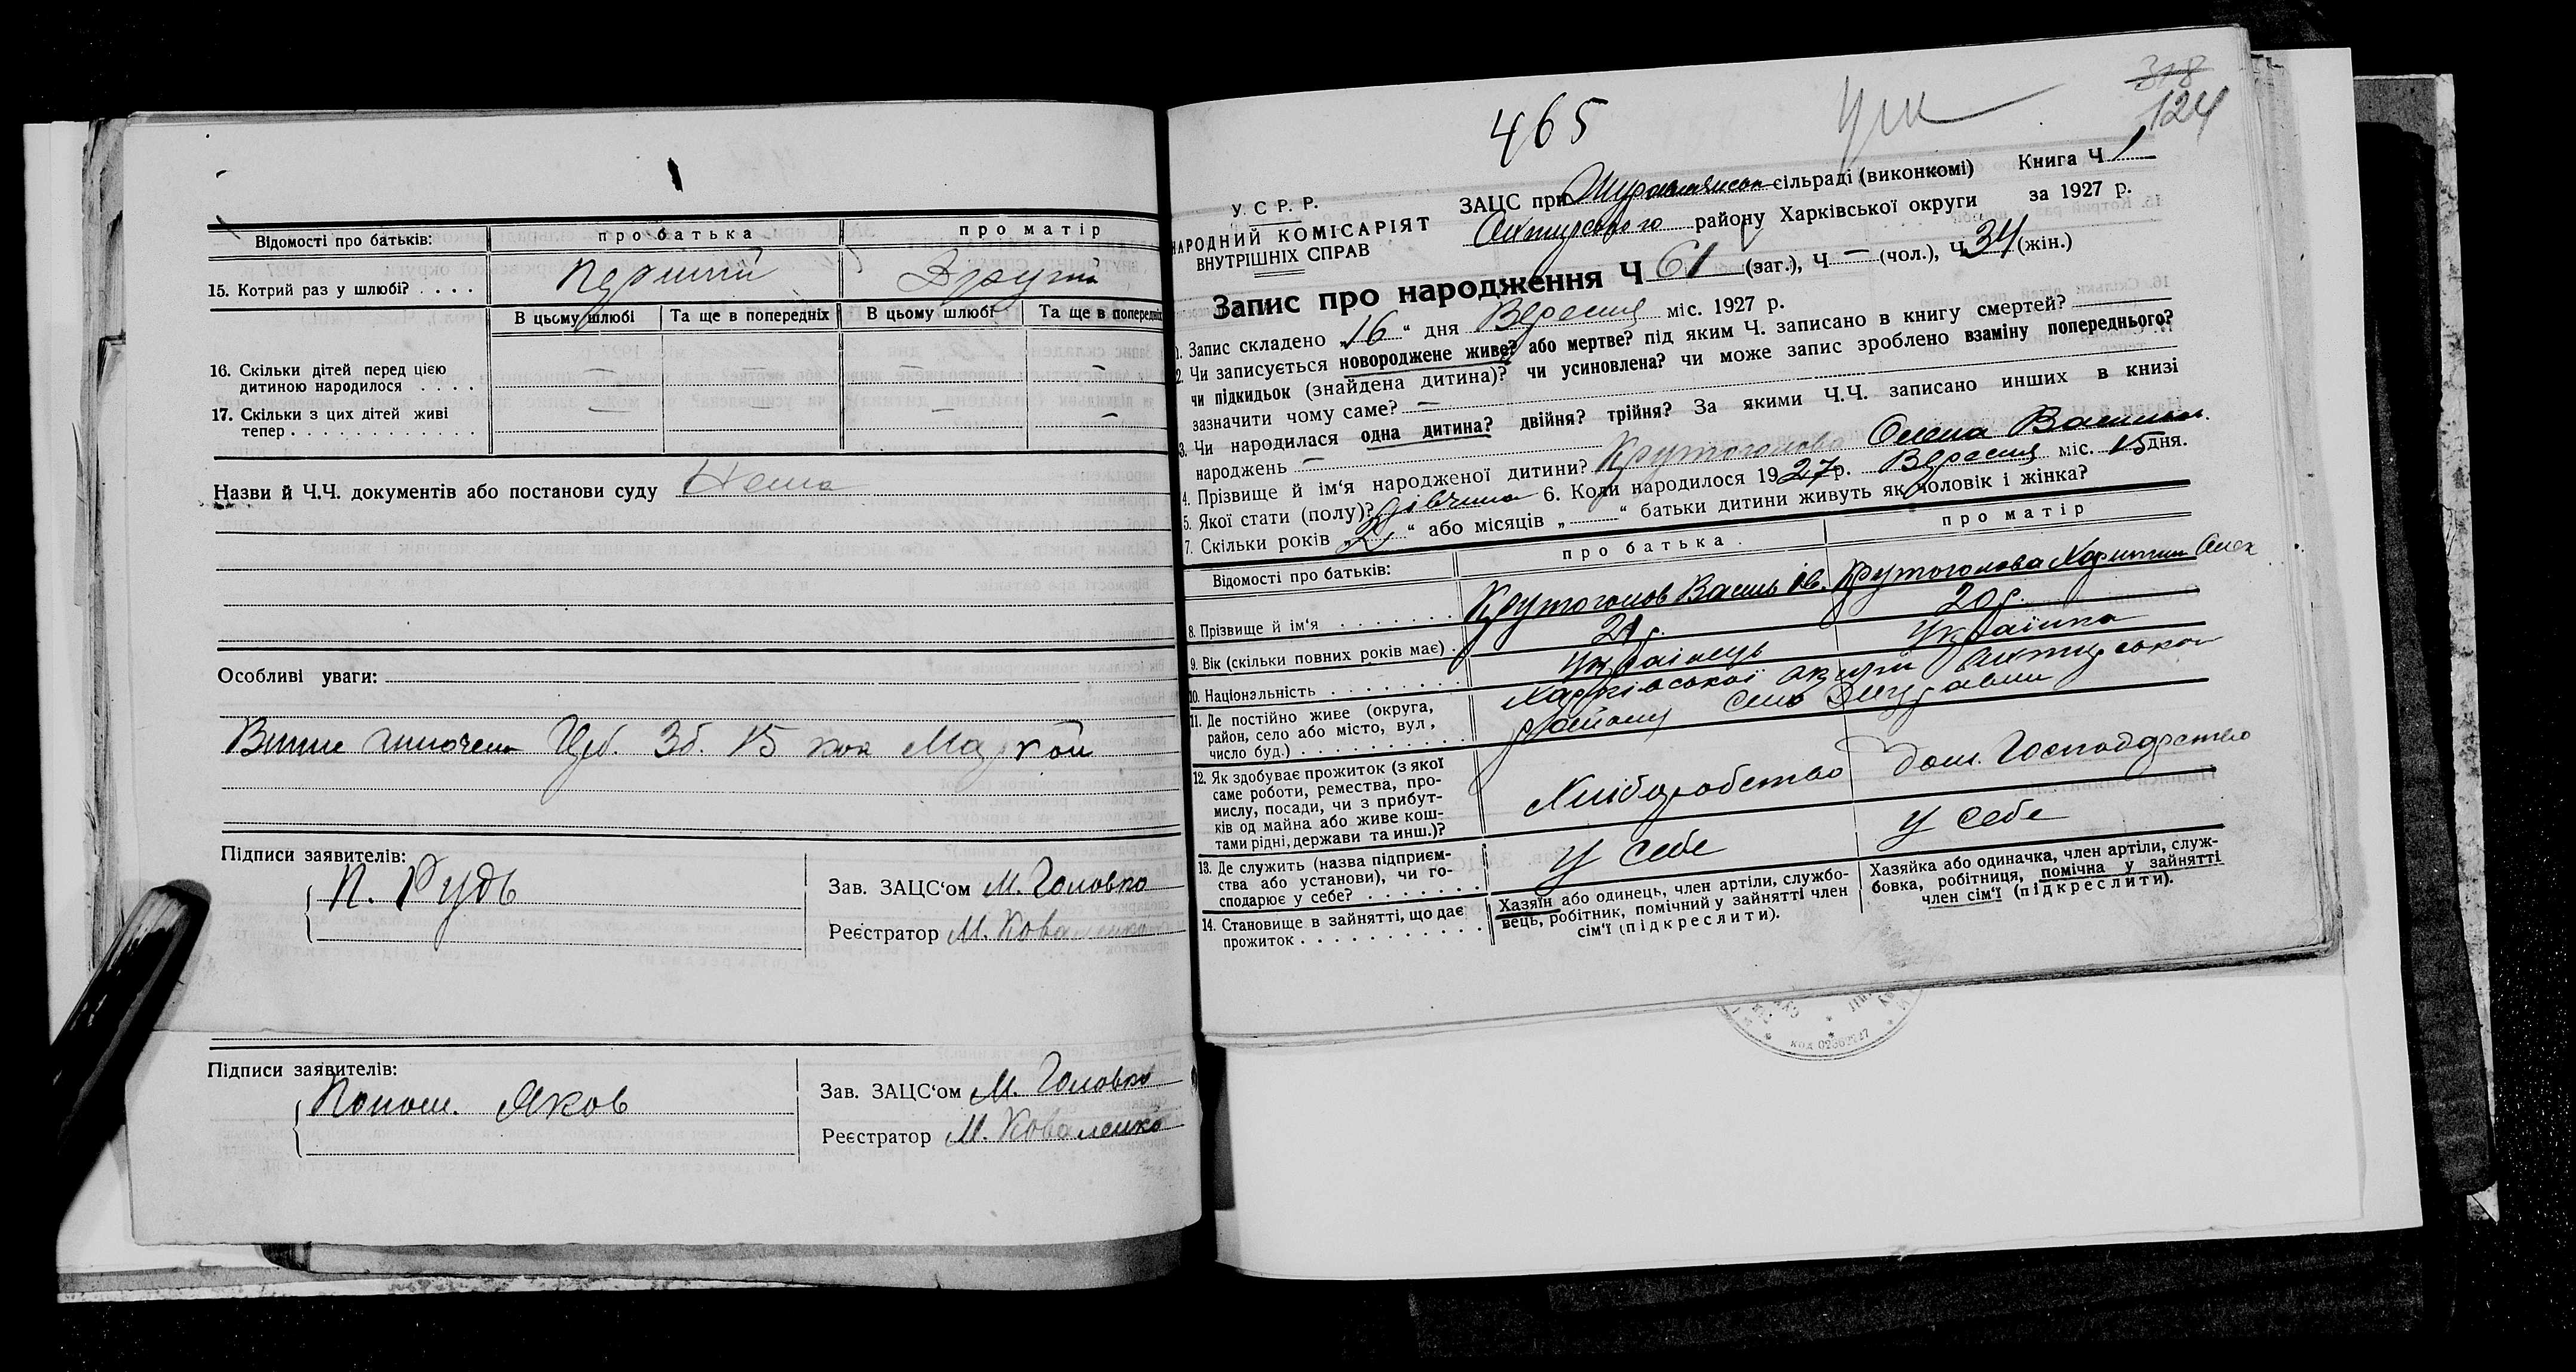 Відомості про батьків: про батька про матір
15. Котрий раз у шлюбі? . . . . Перший Другий
В цьому шлюбі Та ще в попередніх В цьому шлюбі Та ще в попередніх
16. Скільки дітей перед цією — — — —
дитиною народилося . . . .
17. Скільки з цих дітей живі — — — —
тепер . . . . . . . . . . . . .
Назви й Ч.Ч. документів або постанови суду Нема
Особливі уваги:
Зб. 15 коп Маркой
Підписи заявителів:
П. Рудь
Зав. ЗАЦС‘ом М. Головко
Реєстратор М. Коваленко
Підписи заявителів:
Яков
Зав. ЗАЦС‘ом М. Головко
Реєстратор М. Коваленко
318
124
465
У. С. Р. Р.
НАРОДНИЙ КОМІСАРІЯТ
ВНУТРІШНІХ СПРАВ
ЗАЦС при сільраді (виконкомі) Книга Ч 1
Охтирського району Харківської округи за 1927 р.
Запис про народження Ч 61 (заг.), Ч — (чол.), Ч 34 (жін.)
1. Запис складено „16“ дня Вересня міс. 1927 р.
2. Чи записується новороджене живе? або мертве? під яким Ч. записано в книгу смертей?
чи підкидьок (знайдена дитина)? чи усиновлена? чи може запис зроблено взаміну попереднього?
зазначити чому саме? —
3. Чи народилася одна дитина? двійня? трійня? За якими Ч.Ч. записано инших в книзі
народжень —
4. Прізвище й ім‘я народженої дитини? Крутоголова Олена Васильов.
5. Якої стати (полу)? дівчина 6. Коли народилося 1927р. Вересня міс. 15 дня.
7. Скільки років „2“ або місяців „ “ батьки дитини живуть як чоловік і жінка?
Відомості про батьків: про батька про матір
8. Прізвище й ім‘я . . . . . . . Крутоголов Василь Ів. Крутоголова Харитин Олек
9. Вік (скільки повних років має) . 21 р. 20 р.
10. Національність . . . . . . . . Українець Українка
11. Де постійно живе (округа,
район, село або місто, вул,
число буд.) . . . . . . . . . . .
Харківської округи Охтирського
району село Журавни
12. Як здобуває прожиток (з якої
саме роботи, ремества, про-
мислу, посади, чи з прибут-
ків од майна або живе кош-
тами рідні, держави та инш.)?
Хліборобство Дом. Господарство
13. Де служить (назва підприєм-
ства або установи), чи го-
сподарює у себе? . . . . . . .
У себе У себе
14. Становище в зайнятті, що дає
прожиток . . . . . . . . . . . .
Хазяїн або одинець, член артіли, службо-
вець, робітник, помічний у зайнятті член
сім‘ї (підкреслити).
Хазяйка або одиначка, член артіли, служ-
бовка, робітниця, помічна у зайнятті
член сім‘ї (підкреслити).